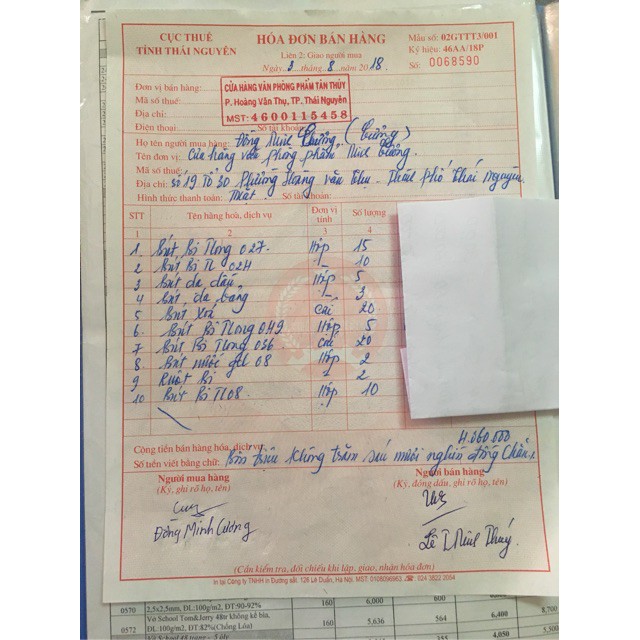 CỤC THUẾ
TỈNH THÁI NGUYÊN
HÓA ĐƠN BÁN HÀNG
Liên 2: Giao người mua
Ngày 3 tháng 8 năm 2018.
Mẫu số: 02GTTT3/001
Ký hiệu: 46AA/18P
Số: 0068590
Đơn vị bán hàng:
Mã số thuế:
Địa chỉ:
Điện thoại: Số tài khoản:
CỬA HÀNG VĂN PHÒNG PHẨM TÂN THỦY
P. Hoàng Văn Thụ, TP. Thái Nguyên
MST: 4600115458
Họ tên người mua hàng: Đồng Minh Cường (Cường)
Tên đơn vị: Cửa hàng văn phòng phẩm Minh Cường.
Mã số thuế:
Địa chỉ: Số 19 Tổ 30 Phường Hoàng Văn Thụ. Thành phố Thái Nguyên
Hình thức thanh toán: Mặt. Số tài khoản:
STT Tên hàng hoá, dịch vụ Đơn vị tính Số lượng
1 2 3 4
1. Bút Bi TLong 027. Hộp 15
2 Bút Bi TL 024 _ 10
3 Bút dạ dầu Hộp 5
4 Bút dạ bảng _ 3
5 Bút xoá Cái 20
6. Bút Bi TLong 049 Hộp 5
7 Bút Bi TLong 036 Cái 20
8. Bút nước gel 08 Hộp 2
9 Ruột Bi 2
10 Bút Bi TL08 Hộp 10
Cộng tiền bán hàng hóa, dịch vụ: 4.060.000
Số tiền viết bằng chữ: Bốn triệu không trăm sáu mươi nghìn đồng chẵn.
Người mua hàng
(Ký, ghi rõ họ, tên)
Đồng Minh Cường
Người bán hàng
(Ký, đóng dấu, ghi rõ họ, tên)
Lê T Minh Thúy
(Cần kiểm tra, đối chiếu khi lập, giao, nhận hóa đơn)
In tại Công ty TNHH in Đường sắt. 126 Lê Duẩn, Hà Nội. MST: 0108096963. ĐT: 024 3822 2084
0570 2,5x2,5mm, ĐL:100g/m2, ĐT:90-92% 160 6,000 600
Vở School Tom&Jerry 48tr không kẻ bìa.
0572 ĐL:100g/m2, ĐT:82%(Chống Lóa) 160 5,636 564 6,400
160 4,055 5,500